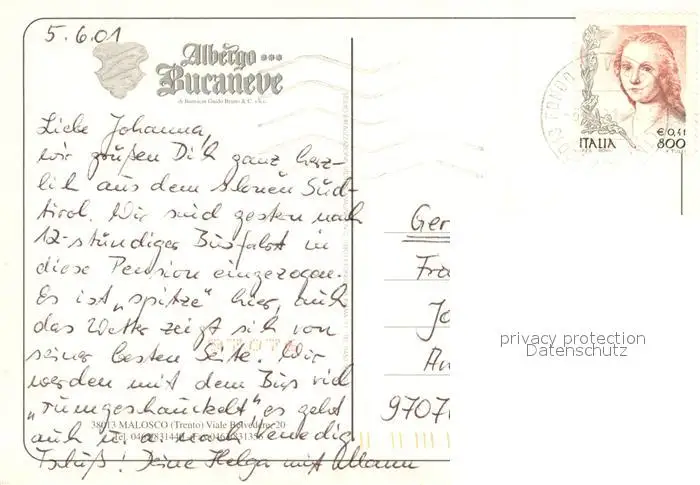 5.6.01
Albergo ***
Bucaneve
Liebe Johanna,
wir grüßen Dich ganz herz-
lich aus dem schönen Süd-
tirol. Wir sind gestern nach
12-stündiger Busfahrt in
diese Pension eingezogen.
Es ist „spitze" hier, auch
das Wetter zeigt sich von
seiner besten Seite. Wir
werden mit dem Bus viel
„rumgeschauckelt" es geht
auch u. a. nach Venedig
Tschüß! Deine Helga mit Mann
38013 MALOSCO (Trento) Viale Belvedere, 20
ITALIA
€ 0,41
800
Ger
Fra
Jo
An
9707
privacy protection
Datenschutz